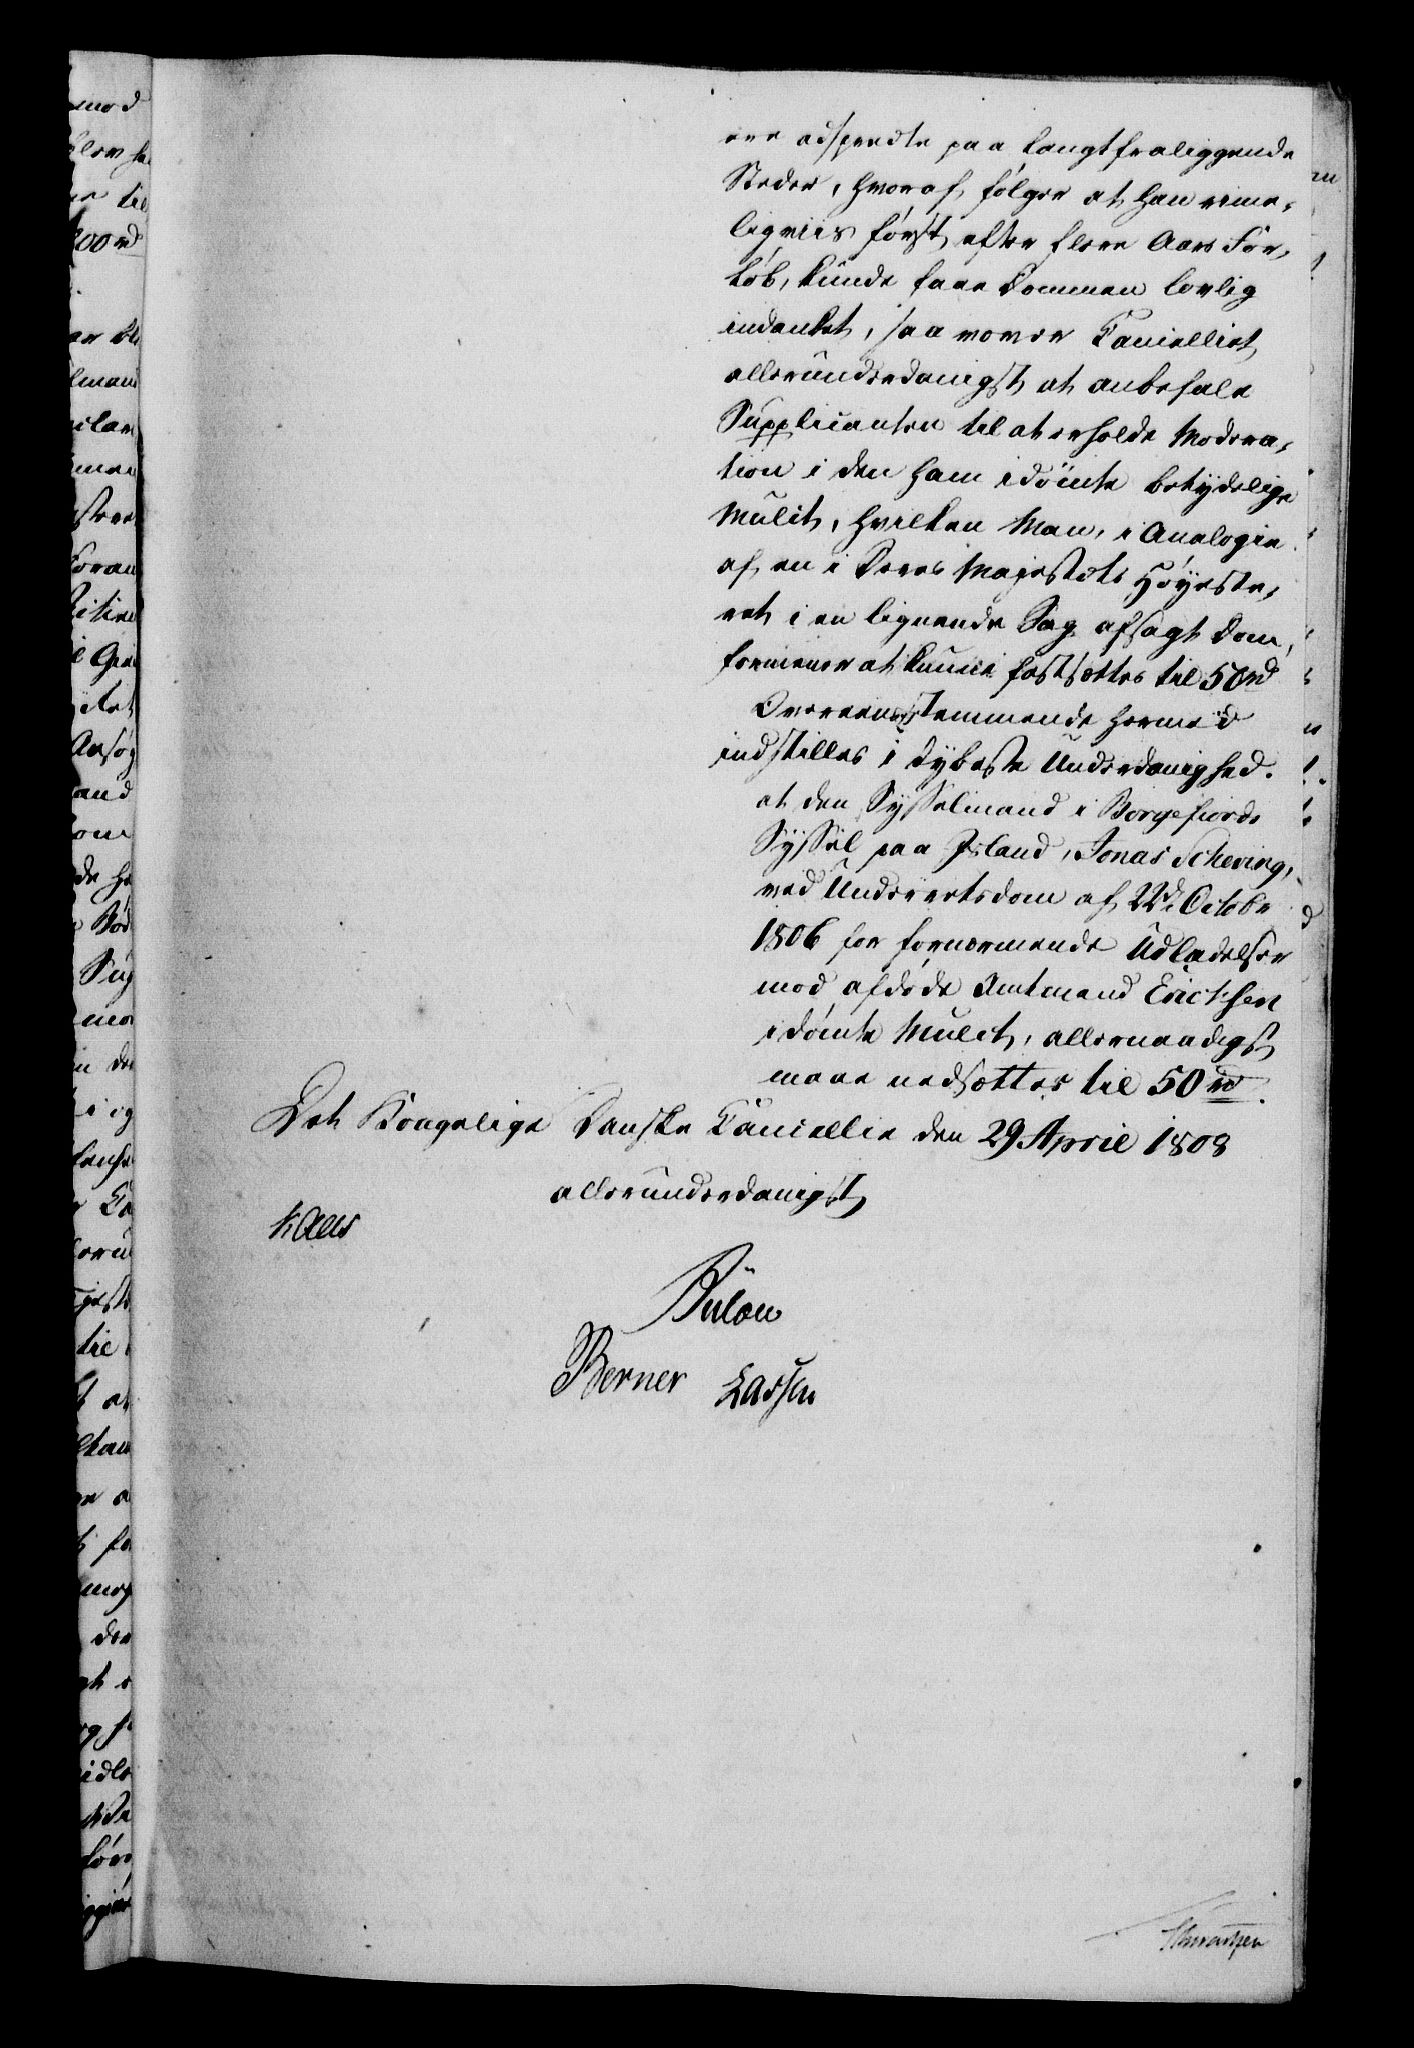 ere adspredte paa langtfraliggende
Steder, hvoraf følger at han rime,
ligviis først efter flere Aars For,
løb, kunde faae Dommen lovlig
indanket, saa vover Cancelliet
allerunderdanigst at anbefale
Supplicanten til at erholde Modera,
tion i den ham idömte betydelige
Mulct, hvilken Man, i Analogie
af en i Deres Majestæts Høyeste,
ret i en lignende Sag afsagt Dom,
formener at kunne fastsættes til 50 rd
Overeensstemmende hermed
indstilles i dybeste Underdanighed.
at den Sysselmand i Borgefiords
Syssel paa Island, Jonas Scheving,
ved Underretsdom af 22d Octobr
1806 for fornærmende Udladelser
mod afdøde Amtmand Erichsen
idömte Mulct, allernaadigst
maae nedsættes til 50 rd.
Det Kongelige Danske Cancellie den 29 April 1808
allerunderdanigst
Kaas
Bülow
Berner Lassen